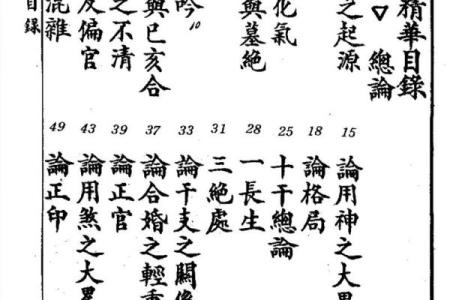 精華目錄
▽ 總論
之起源
化氣
與墓絕
吟 10
與已亥合
之不清
及偏官
混雜
15 論用神之大
18 論格局
25 十干總論
28 一長生
31 三絕處
33 論干支之關係
37 論合婚之輕重
39 論正官
43 論用煞之大
49 論正印
目錄